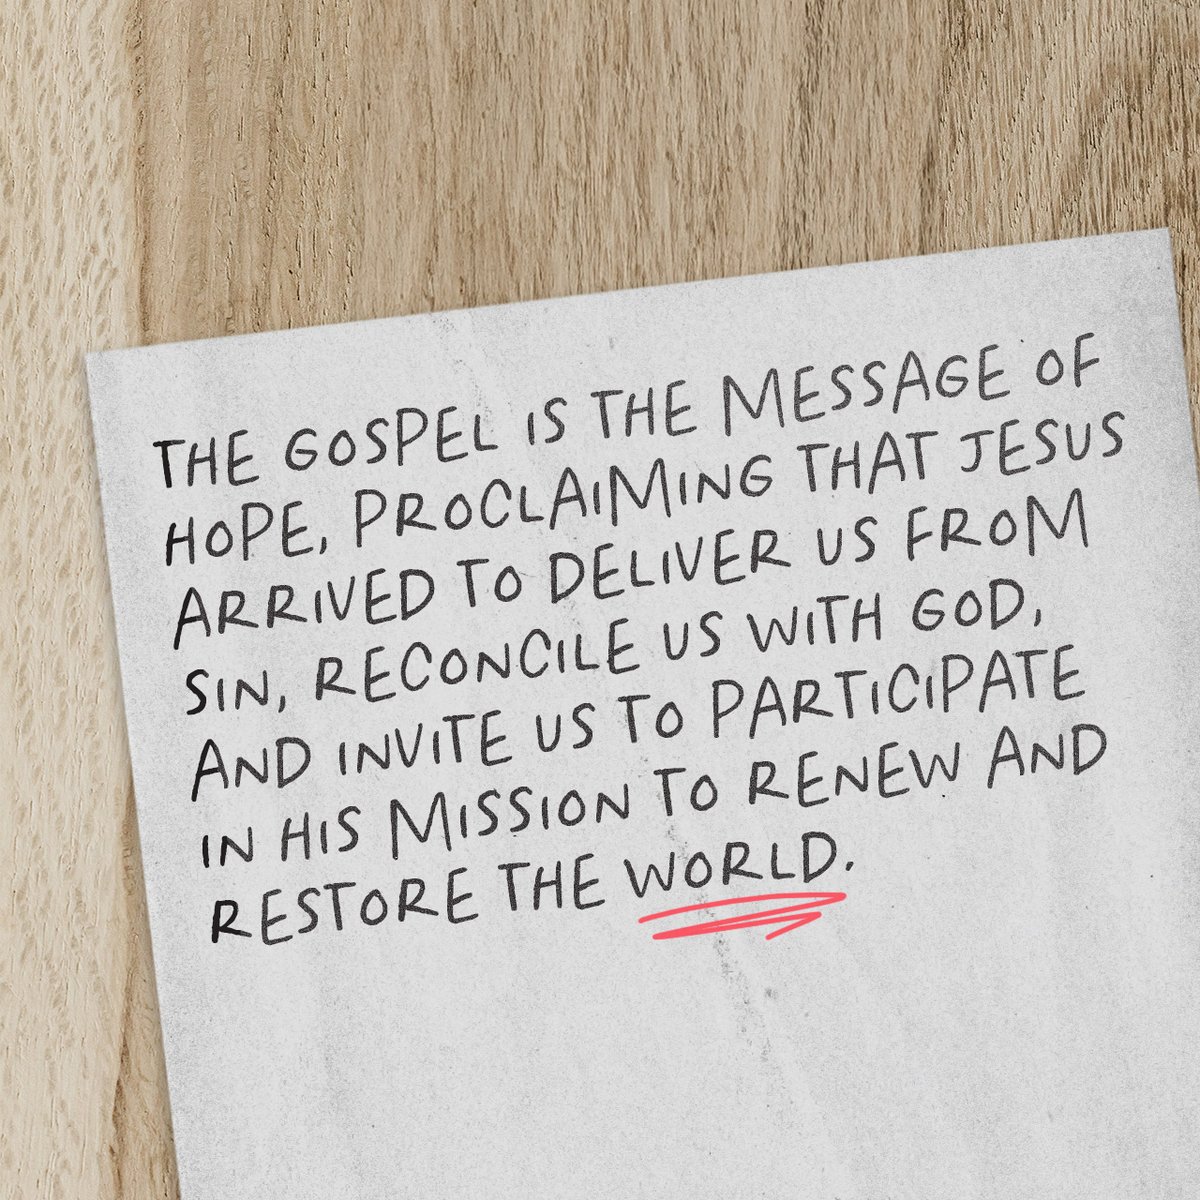 THE GOSPEL IS THE MESSAGE OF
HOPE, PROCLAIMING THAT JESUS
ARRIVED TO DELIVER US FROM
SIN, RECONCILE US WITH GOD,
AND INVITE US TO PARTICIPATE
IN HIS MISSION TO RENEW AND
RESTORE THE WORLD.